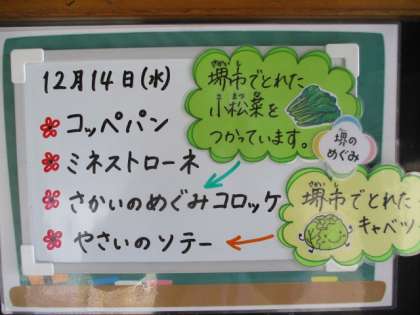 12月14日(水)
コッペパン
ミネストローネ
さかいのめぐみコロッケ
やさいのソテー
堺市でとれた
小松菜を
つかっています。
堺の
めぐみ
堺市でとれた
キャベツ